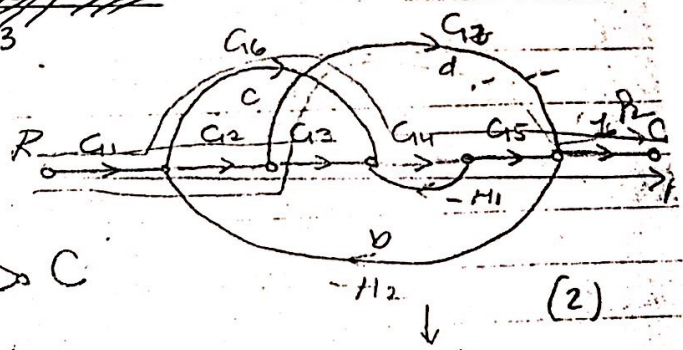 3
G6
G7
c
d
R G1 G2 G3 G4 G5 C
-H1
b
-H2
C
(2)